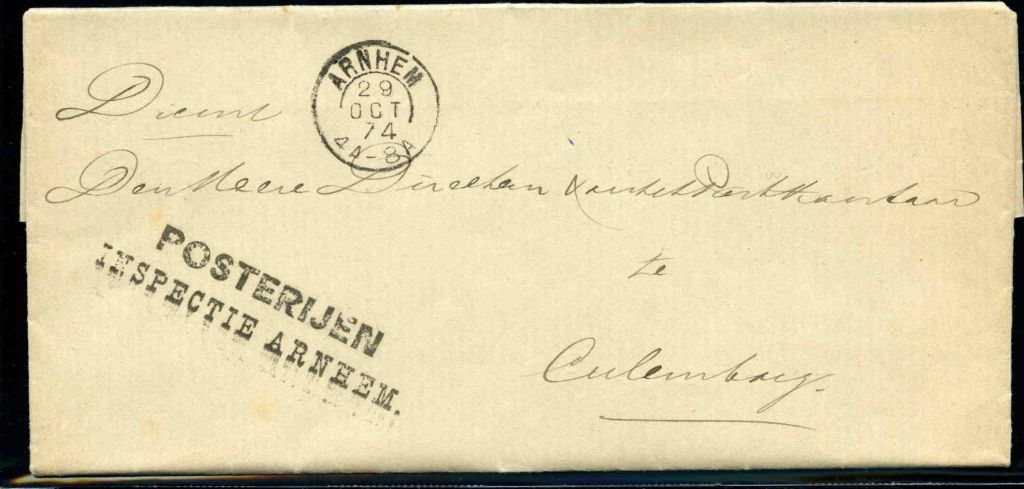 ARNHEM
29
OCT
74
4A-8A
Dienst
Den Heere Directeur van het Postkantoor
te
Culemborg.
POSTERIJEN
INSPECTIE ARNHEM.